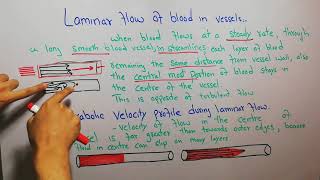 Laminar flow of blood in vessels..
when blood flows at a steady rate, through
a long smooth blood vessel, in streamlines each layer of blood
remaining the same distance from vessel wall, also
the central most portion of blood stays in
the centre of the vessel.
This is opposite of turbulent flow
Velocity profile during laminar flow.
- Velocity of flow in the centre of
is far greater than towards outer edges, because
fluid in centre can slip on many layers